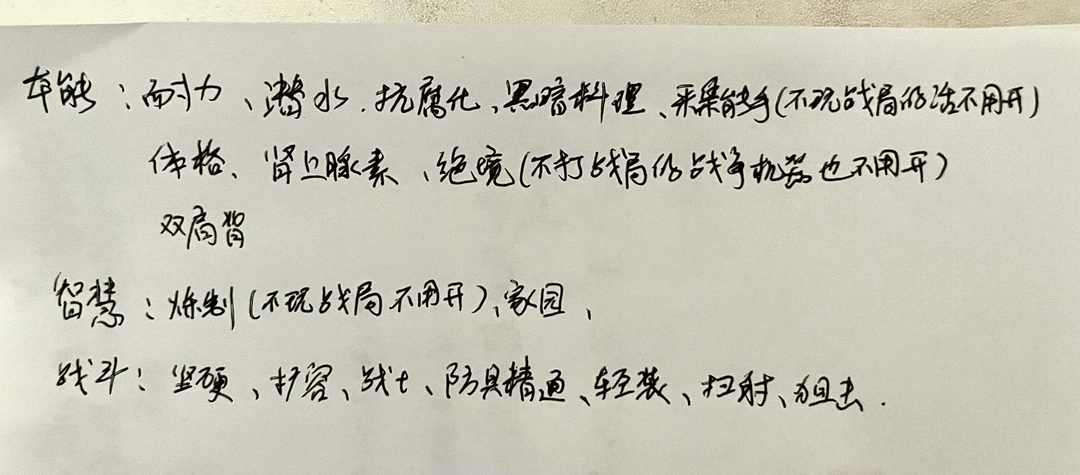 本能：耐力、潜水、抗腐化、黑暗料理、采集能手(不玩战局的话不用开)
体格、肾上腺素、绝境(不打战局的战争机器也不用开)
双肩背
智慧：炼制(不玩战局不用开)、家园、
战斗：坚硬、扩容、战士、防具精通、轻装、扫射、狙击.